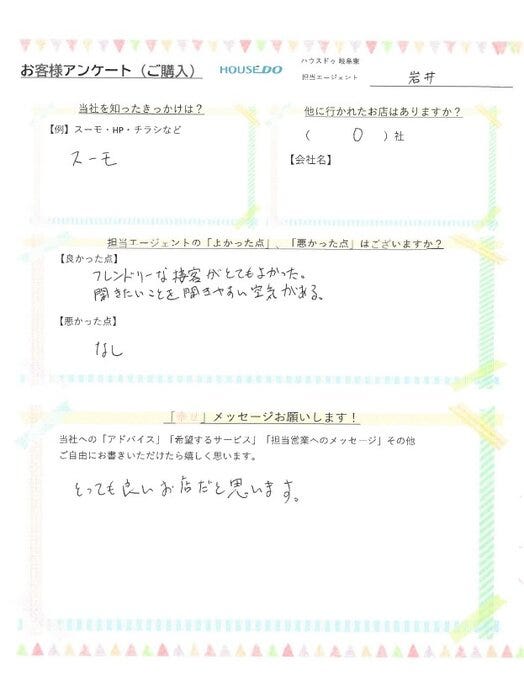 お客様アンケート（ご購入）
HOUSEDO
ハウスドゥ 岐阜東
担当エージェント 岩井
当社を知ったきっかけは？
【例】スーモ・HP・チラシなど
スーモ
他に行かれたお店はありますか？
（ 0 ）社
【会社名】
担当エージェントの「よかった点」、「悪かった点」はございますか？
【良かった点】
フレンドリーな接客がとてもよかった。
聞きたいことを聞きやすい空気がある。
【悪かった点】
なし
「幸せ」メッセージお願いします！
当社への「アドバイス」「希望するサービス」「担当営業へのメッセージ」その他
ご自由にお書きいただけたら嬉しく思います。
とっても良いお店だと思います。